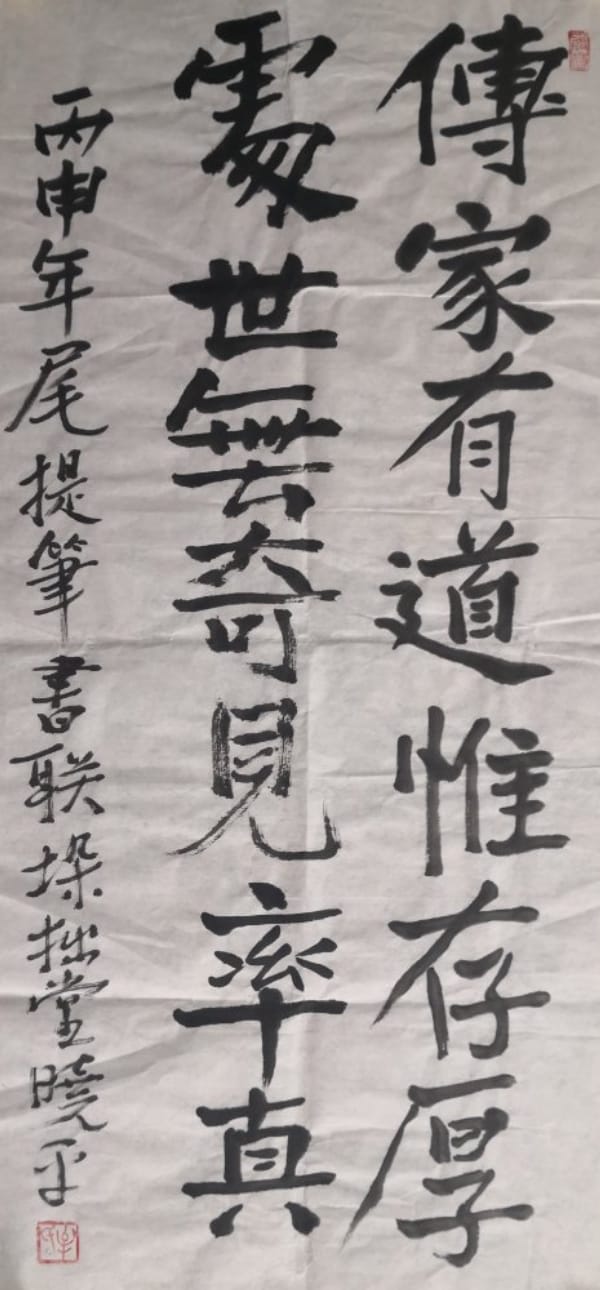 傳家有道惟存厚
處世無奇見率真
丙申年尾提筆書联垛拙堂曉平